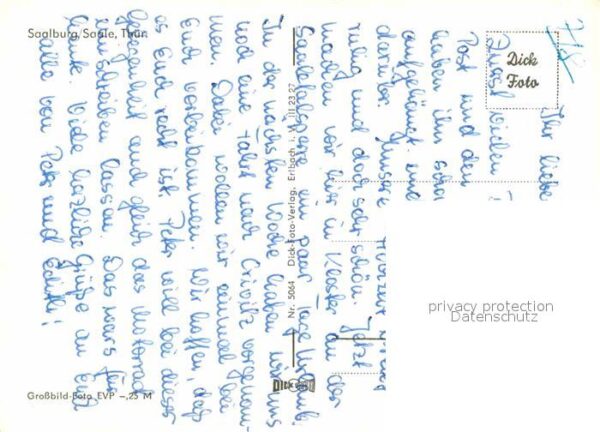 Saalburg, Saale, Thür.
Dick
Foto
Ihr liebe
Zuerst vielen
Post und den
haben ihn schon
aufgehängt und
darüber. Unsere
ruhig und doch sehr schön. Jetzt
machen wir hier in Kloster an der
Saaletalsperre ein paar Tage Urlaub.
In der nächsten Woche haben wir uns
noch eine Fahrt nach Crivitz vorgenom-
men. Dabei wollen wir einmal bei
Euch vorbeikommen. Wir hoffen, daß
es Euch recht ist. Peter will bei dieser
Gelegenheit auch gleich das Motorrad
umschreiben lassen. Das wars für
heute. Viele herzliche Grüße an Euch
alle von Peter und Edith!
Nr. 5064 Dick-Foto-Verlag, Erlbach i. V. III 23 27
DICK
Großbild-Foto EVP -,25 M
privacy protection
Datenschutz